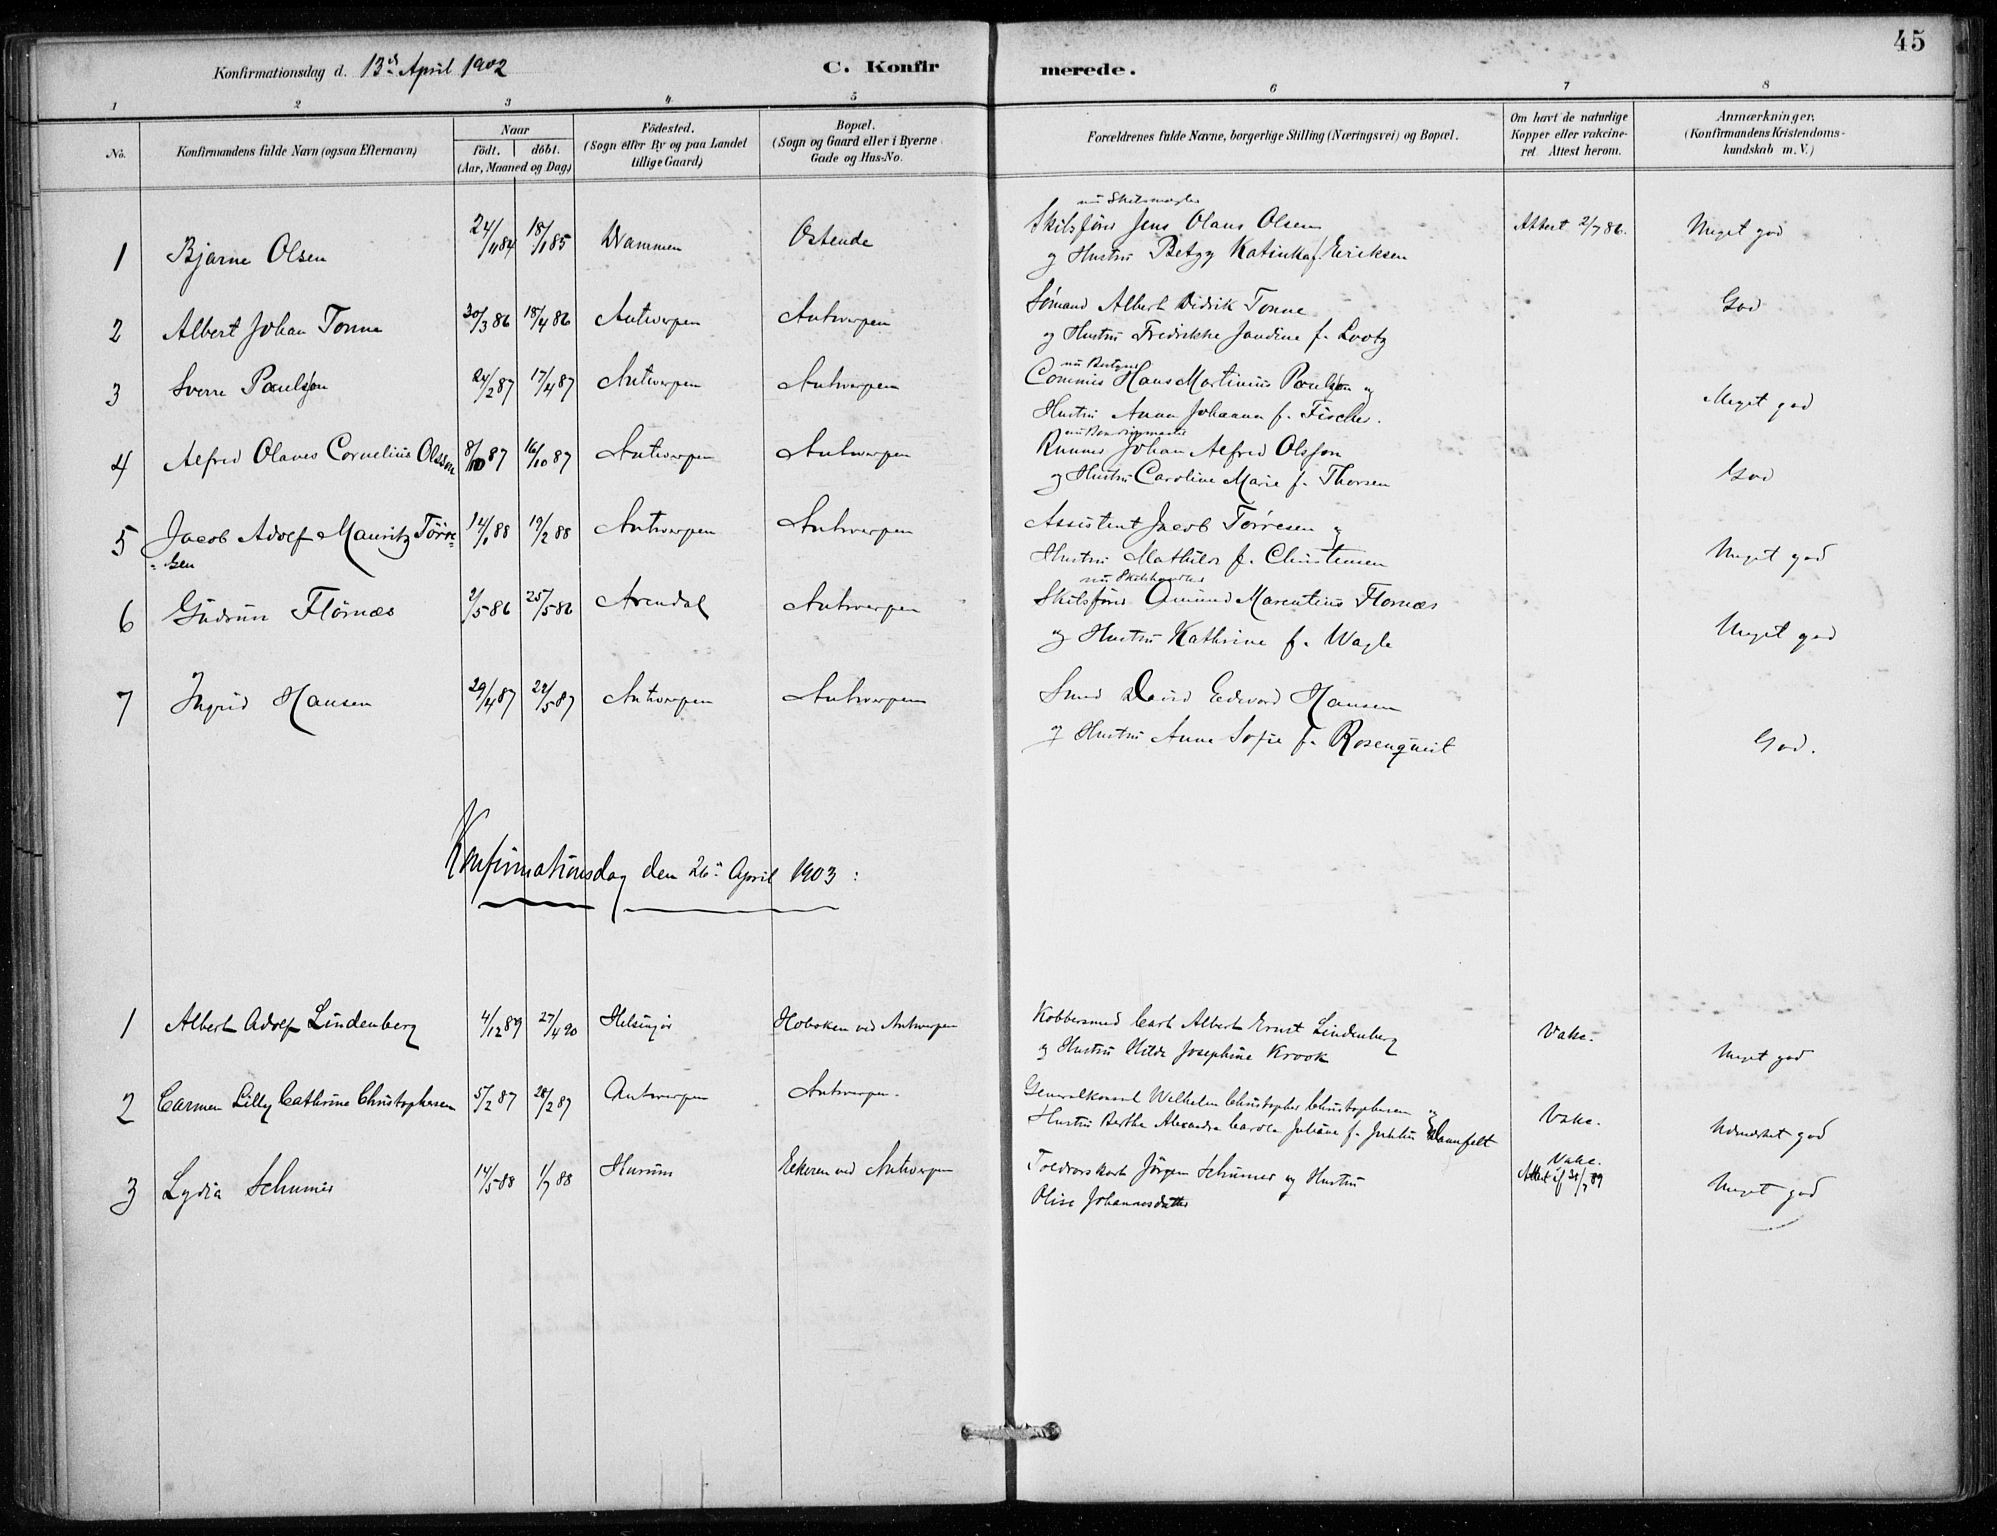 45
Konfirmationsdag d. 13de April 1902
C. Konfirmerede.
1 2 3 4 5 6 7 8
No.
Konfirmandens fulde Navn (ogsaa Efternavn)
Naar
födt. | döbt.
(Aar, Maaned og Dag)
Födested.
(Sogn eller By og paa Landet
tillige Gaard)
Bopæl.
(Sogn og Gaard eller i Byerne
Gade og Hus-No.
Forældrenes fulde Navne, borgerlige Stilling (Næringsvei) og Bopæl.
Om havt de naturlige
Kopper eller vakcine-
ret. Attest herom.
Anmærkninger.
(Konfirmandens Kristendoms-
kundskab m. V.)
1 Bjarne Olsen 24/11 84 18/1 85 Drammen Ostende
nu Skibsmægler
Skibsförer Jens Olaus Olsen
og Hustru Betzy Katinka f. Eriksen
Attest 2/7 86. Meget god
2 Albert Johan Tonne 30/3 86 18/4 86 Antwerpen Antwerpen
Sømand Albert Didrik Tonne
og Hustru Fredrikke Jandine f. Lootz
God
3 Sverre Paulsson 24/2 87 17/4 87 Antwerpen Antwerpen
Commis Hans Martinius Paulsson og
Hustru Anna Johanna f. Fischer.
Meget god
4 Alfred Olaves Cornelius Olsson 8/10 87 16/10 87 Antwerpen Antwerpen
Runner Johan Alfred Olsson
og Hustru Caroline Marie f. Thorsen
God
5 Jacob Adolf Mauritz Törre-
-sen 14/1 88 19/2 88 Antwerpen Antwerpen
Assistent Jacob Törresen og
Hustru Mathilde f. Christensen
Meget god
6 Gudrun Flörnæs 2/5 86 25/5 86 Arendal Antwerpen
nu Skibshandler
Skibsförer Omund Marentius Flornæs
og Hustru Kathrine f. Wagle
Meget god
7 Ingrid Hansen 29/4 87 22/5 87 Antwerpen Antwerpen
Smed David Edvard Hansen
og Hustru Anna Sofie f. Rosenqvist
God.
Konfirmationsdag den 26de April 1903:
1 Albert Adolf Lindenberg 4/12 89 27/4 90 Helsingör Hoboken ved Antwerpen
Kobbersmed Carl Albert Ernst Lindenberg
og Hustru Hilda Josephine Krook
Vakc. Meget god
2 Carmen Lilly Cathrine Christophersen 5/2 87 28/2 87 Antwerpen Antwerpen.
Generalkonsul Wilhelm Christopher Christophersen og
Hustru Bertha Alexandra Carola Juliane f. Juhlin Dannfelt
Vakc. Udmærket god
3 Lydia Schumer 14/5 88 1/7 88 Hurum Eckeren ved Antwerpen
Jörgen Schumer og Hustru
Olise Johannesdatter
Vakc.
Attest af 31/7 89
Meget god